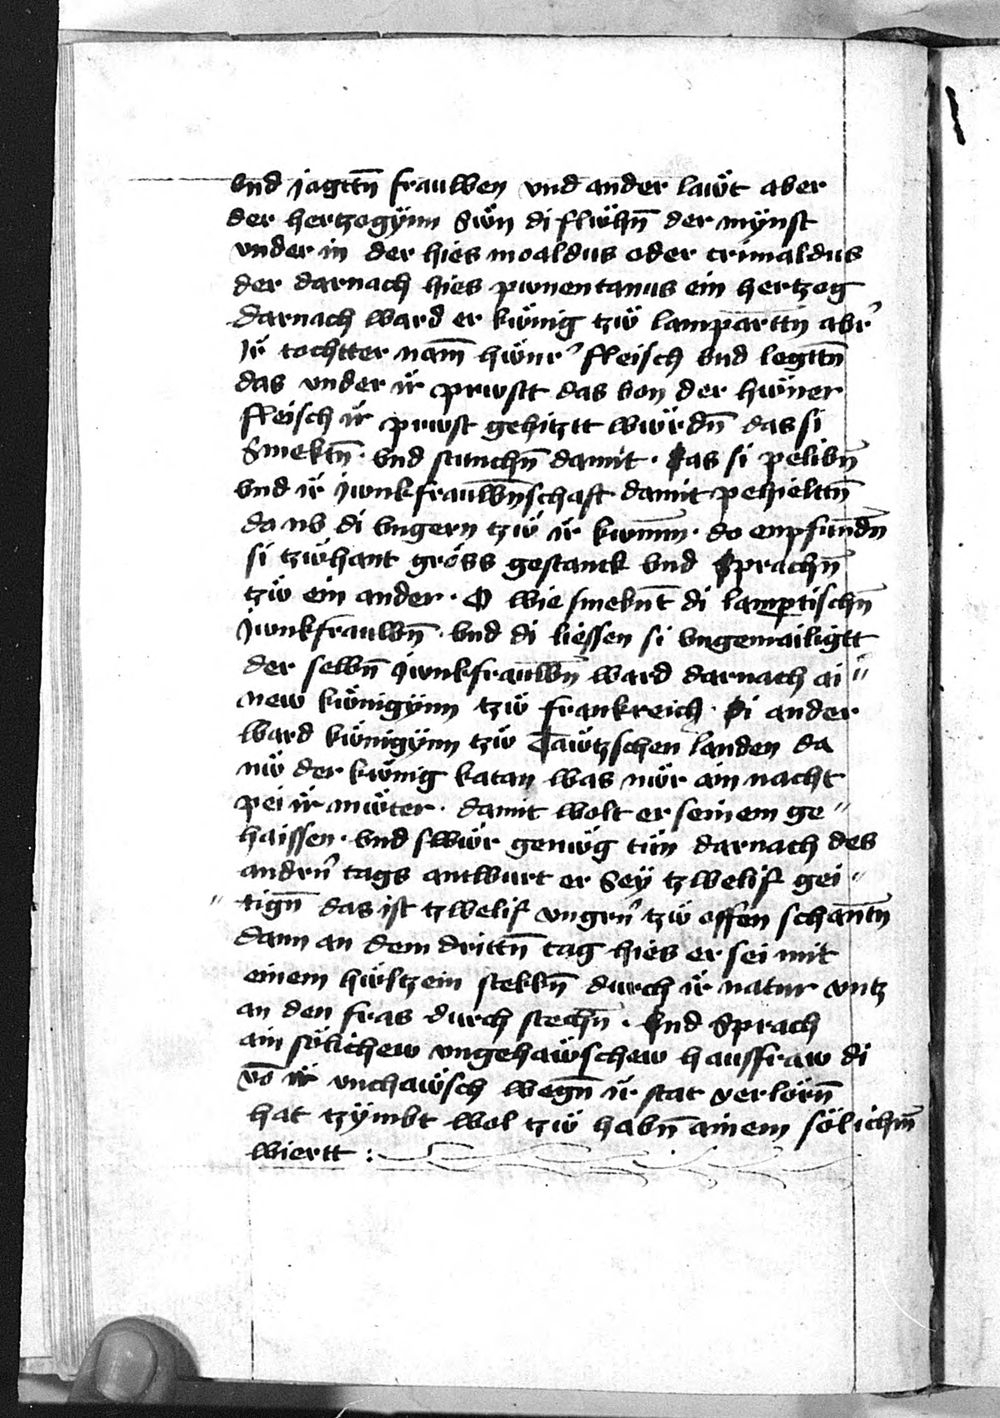 vnd jagttn̄ frauwen vnd ander lawt aber
der hertzogÿnn Swn di flwhn̄ der mÿnst
vnder in der hies moaldus oder crimaldus
der darnach hies pwnentanus ein hertzog
darnach ward er kwnig tzẅ lamparttn abr̛
Jr̈ tochtter nam̄ hẅnr̛ fleisch vnd legttn̄
das vnder ir̈ prwstt das von der hẅner
fleisch ir̈ prwst gehitztt wẅrdn̄ das si
Smektn̄ · vnd stunchn̄ damit · das si pelibn̄
vnd ir̈ jwnkfrauwn̄schaft damit pehielttn̄
da nẅ di vngern tzẅ ir̈ kwmm̄ · do enpfundn̄
si tzẅhant gröss gestanck vnd Sprachn̄
tzẅ ein ander · O wie smeknt̄ di lampertischn̄
Jwnkfrauwn̄ · vnd di liessen si vngemailigtt
der selbn̄ Jwnkfrauwn̄ ward darnach ai〃
new kẅnigÿnn tzẅ frankreich · di ander
ward kẅnigÿnn tzẅ Tawtzschen landen da
nẅ der kẅnig katan was nẅr ain nacht
pei ir̈ mẅter · damit wolt er seinem ge〃
haissen · vnd swẅr genẅg tün darnach des
andrn̛ tags antwurt er Seÿ tzwelif gei〃
〃tign̄ das ist tzwelif vngrn̛ tzẅ offen schantn̄
dann an dem drittn̄ tag hies er sei mit
einem hẅltzein stekkn̄ durch ir̈ natur vntz
an den fras durch stechn̄ · vnd Sprach
ain sölichew vngehawschew hausfraw di
vō ir̈ vnchawsch wegn̄ ir̈ stat verlorn̄
hat tzÿmbt wol tzẅ habn̄ ainem sölichm̄
wiertt :